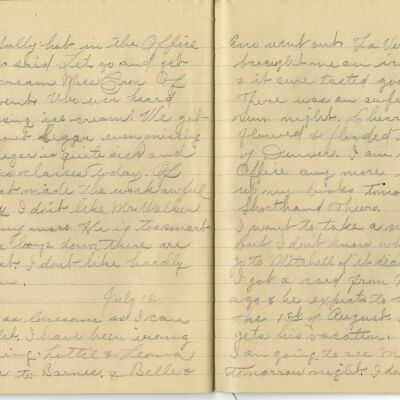 hot in the Office
said Let's go and get
cream Miss Coon Of
went. Who ever heard
ice-cream? We get
out sugar even mixing
sugar is quite sick and
classes today. Of
made the work awful
I don't like Mr. Walker
any more He is too smart
down there are
I don't like hardly
July 16.
as lonesome as I can
I have been wrong
Lottie & Leona
to Barnes. & Belle &
Eno went out. La Ve
brought me an ic
& it sure tasted goo
There was an awfu
Sun night. Cherr
flowed & flooded
of Denver. I am
Office any more
my books tomo
Shorthand thurs.
I want to take a
but I don't know wh
go to Mitchell if it does
I got a card from
ago & he expects to
the 1st of August.
gets his vacation.
I am going to see M
tomorrow night. I do